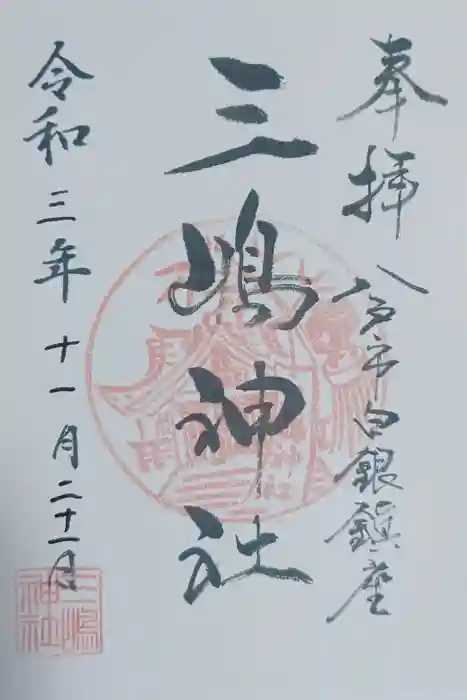 奉拝
八戸市白銀鎮座
三嶋神社
令和三年十一月二十一日
三嶋
神社